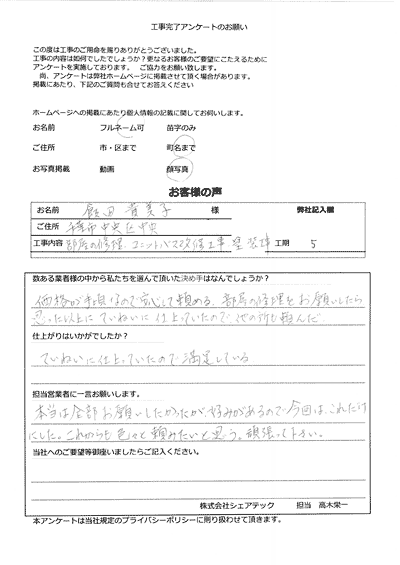 工事完了アンケートのお願い
この度は工事のご用命を賜りありがとうございました。
工事の内容は如何でしたでしょうか？更なるお客様のご要望にこたえるために
アンケートを実施しております。　ご協力をお願い致します。
尚、アンケートは弊社ホームページに掲載させて頂く場合があります。
掲載にあたり、下記のご質問も合せてお答えください
ホームページへの掲載にあたり個人情報の記載に関してお伺いします。
お名前　フルネーム可　苗字のみ
ご住所　市・区まで　町名まで
お写真掲載　動画　顔写真
お客様の声
お名前　飯田　貴美子　様　弊社記入欄
ご住所　千葉市中央区中央
工事内容　部屋の修理　ユニットバス改修工事　塗装　工期　5
数ある業者様の中から私たちを選んで頂いた決め手はなんでしょうか？
価格が手頃なので安心して頼める。部屋の修理をお願いしたら
思った以上にていねいに仕上っていたので他の所も頼んだ
仕上がりはいかがでしたか？
ていねいに仕上っていたので満足している
担当営業者に一言お願いします。
本当は全部お願いしたかったが、好みがあるので今回は、これだけ
にした。これからも色々と頼みたいと思う。頑張って下さい。
当社へのご要望等御座いましたらご記入ください。
株式会社シェアテック　担当　高木栄一
本アンケートは当社規定のプライバシーポリシーに則り扱わせて頂きます。